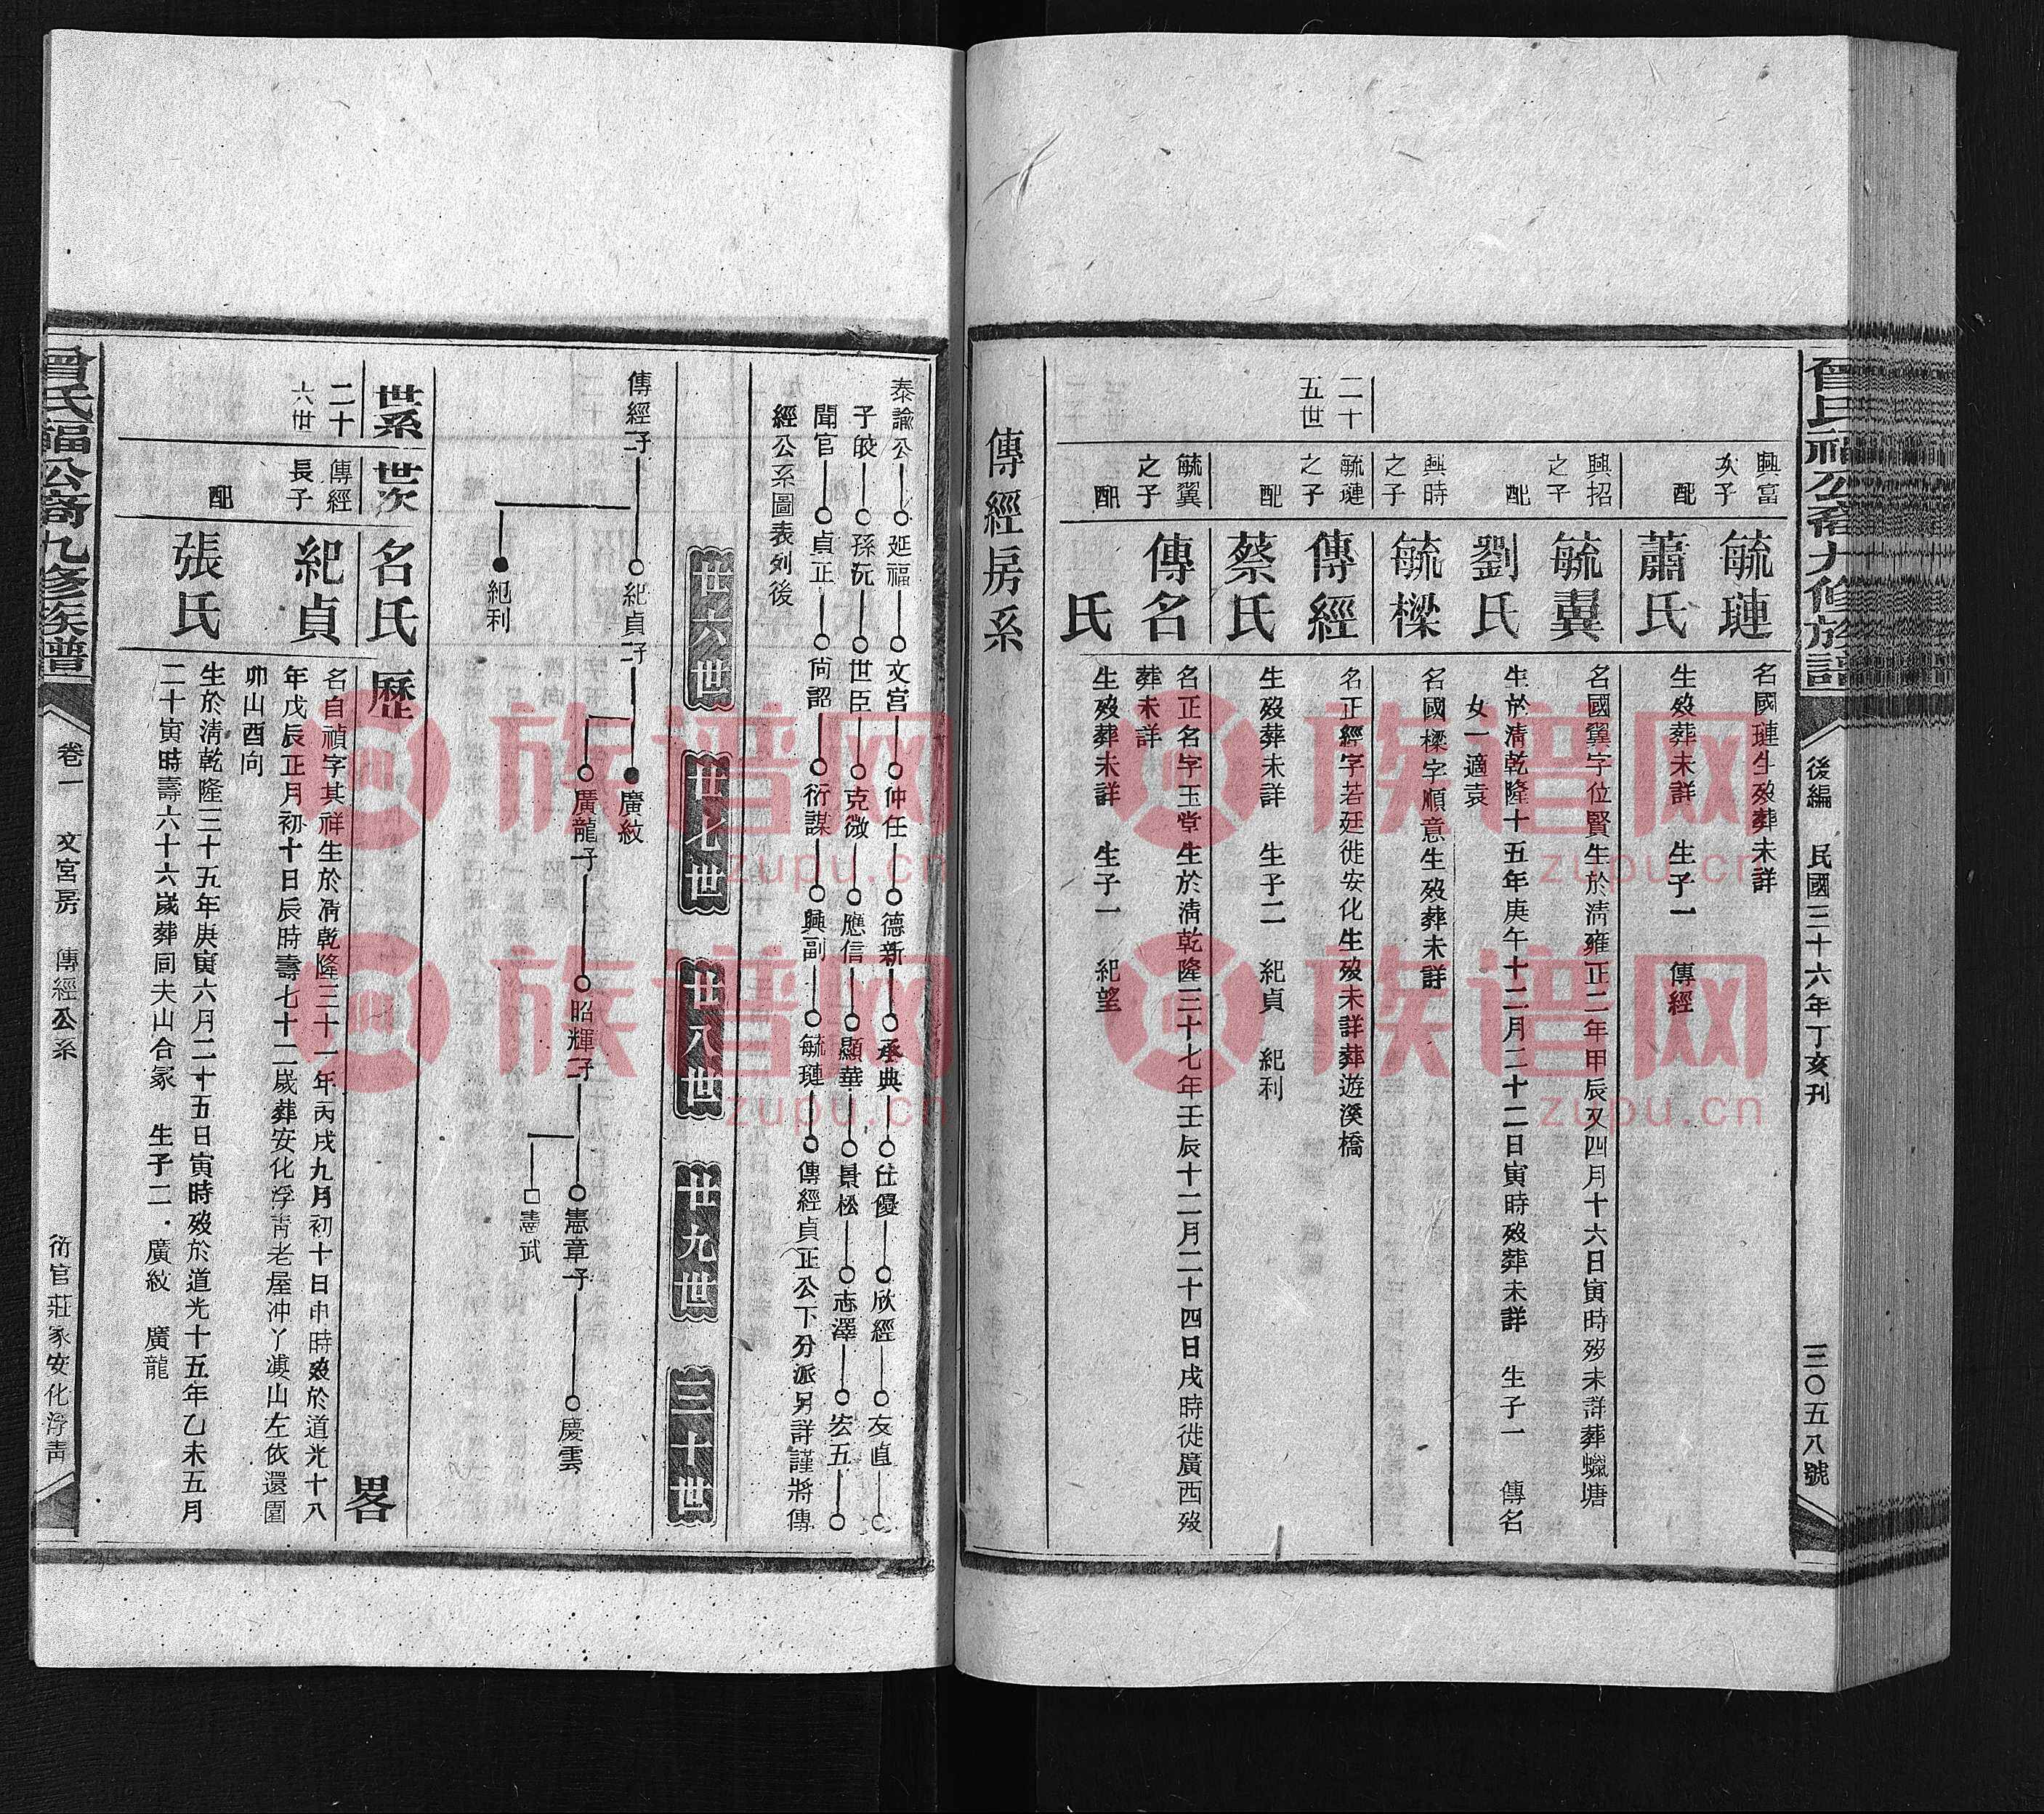 曾氏福公裔九修族譜
後編　民國三十六年丁亥刊
三〇五八號
興富次子
毓璉
名國璉生歿葬未詳
配
蕭氏
生歿葬未詳　生子一　傳經
興招之子
毓翼
名國翼字位賢生於清雍正二年甲辰又四月十六日寅時歿未詳葬蠟塘
配
劉氏
生於清乾隆十五年庚午十二月二十二日寅時歿葬未詳　生子一　傳名
女一適袁
興時之子
毓樑
名國樑字順意生歿葬未詳
二十五世
毓璉之子
傳經
名正經字若廷徙安化生歿未詳葬遊溪橋
配
蔡氏
生歿葬未詳　生子二　紀貞　紀利
毓翼之子
傳名
名正名字玉堂生於清乾隆三十七年壬辰十二月二十四日戌時徙廣西歿
葬未詳
配
氏
生歿葬未詳　生子一　紀望
傳經房系
泰諭公　延福　文宮　仲任　德新　承典　仕優　欣經　友直
子皎　孫沅　世臣　克微　應信　顯華　景松　志澤　宏五
聞官　貞正　尙詔　衍謀　興副　毓璉　傳經貞正公下分派另詳謹將傳
經公系圖表列後
廿六世　廿七世　廿八世　廿九世　三十世
傳經子　紀貞子　廣紋
廣龍子　昭輝子　憲章子　慶雲
憲武
紀利
世系　世次　名氏　歷　畧
二十六世
傳經長子
紀貞
名自禎字其祥生於清乾隆三十一年丙戌九月初十日申時歿於道光十八
年戊辰正月初十日辰時壽七十二歲葬安化浮靑老屋冲丫㙟山左依還園
卯山酉向
配
張氏
生於淸乾隆三十五年庚寅六月二十五日寅時歿於道光十五年乙未五月
二十寅時壽六十六歲葬同夫山合冢　生子二　廣紋　廣龍
曾氏福公裔九修族譜
卷一　文宮房　傳經公系
衍官莊家安化浮靑
族谱网
zupu.cn
族谱网
zupu.cn
族谱网
zupu.cn
族谱网
zupu.cn